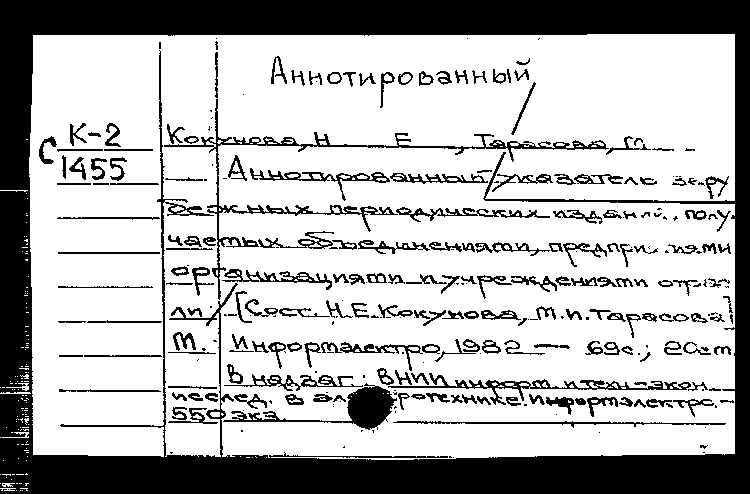 Аннотированный
С К-2
1455
Кокунова, Н Е , Тарасова, М
Аннотированный указатель зару
бежных периодических изданий, полу-
чаемых объединениями, предприятиями
организациями и учреждениями отрас
ли. [Сост. Н.Е.Кокунова, М.П.Тарасова]
М.: Информэлектро, 1982 — 69с.; 20см.
В надзаг.: ВНИИ информ. и техн-экон.
исслед. в электротехнике. Информэлектро.-
550 экз.